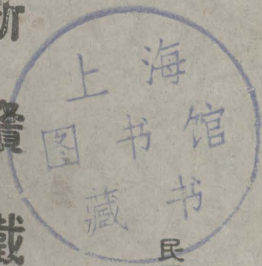 上海
图书馆
藏书
民